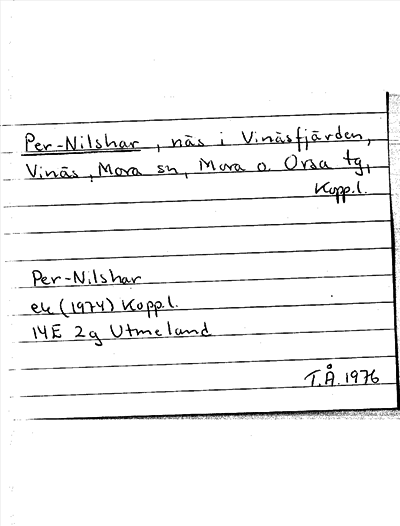 Per-Nilshar, näs i Vinäsfjärden,
Vinäs, Mora sn, Mora o. Orsa tg,
Kopp.l.
Per-Nilshar
ek (1974) Kopp.l.
14E 2g Utmeland
T.Å. 1976